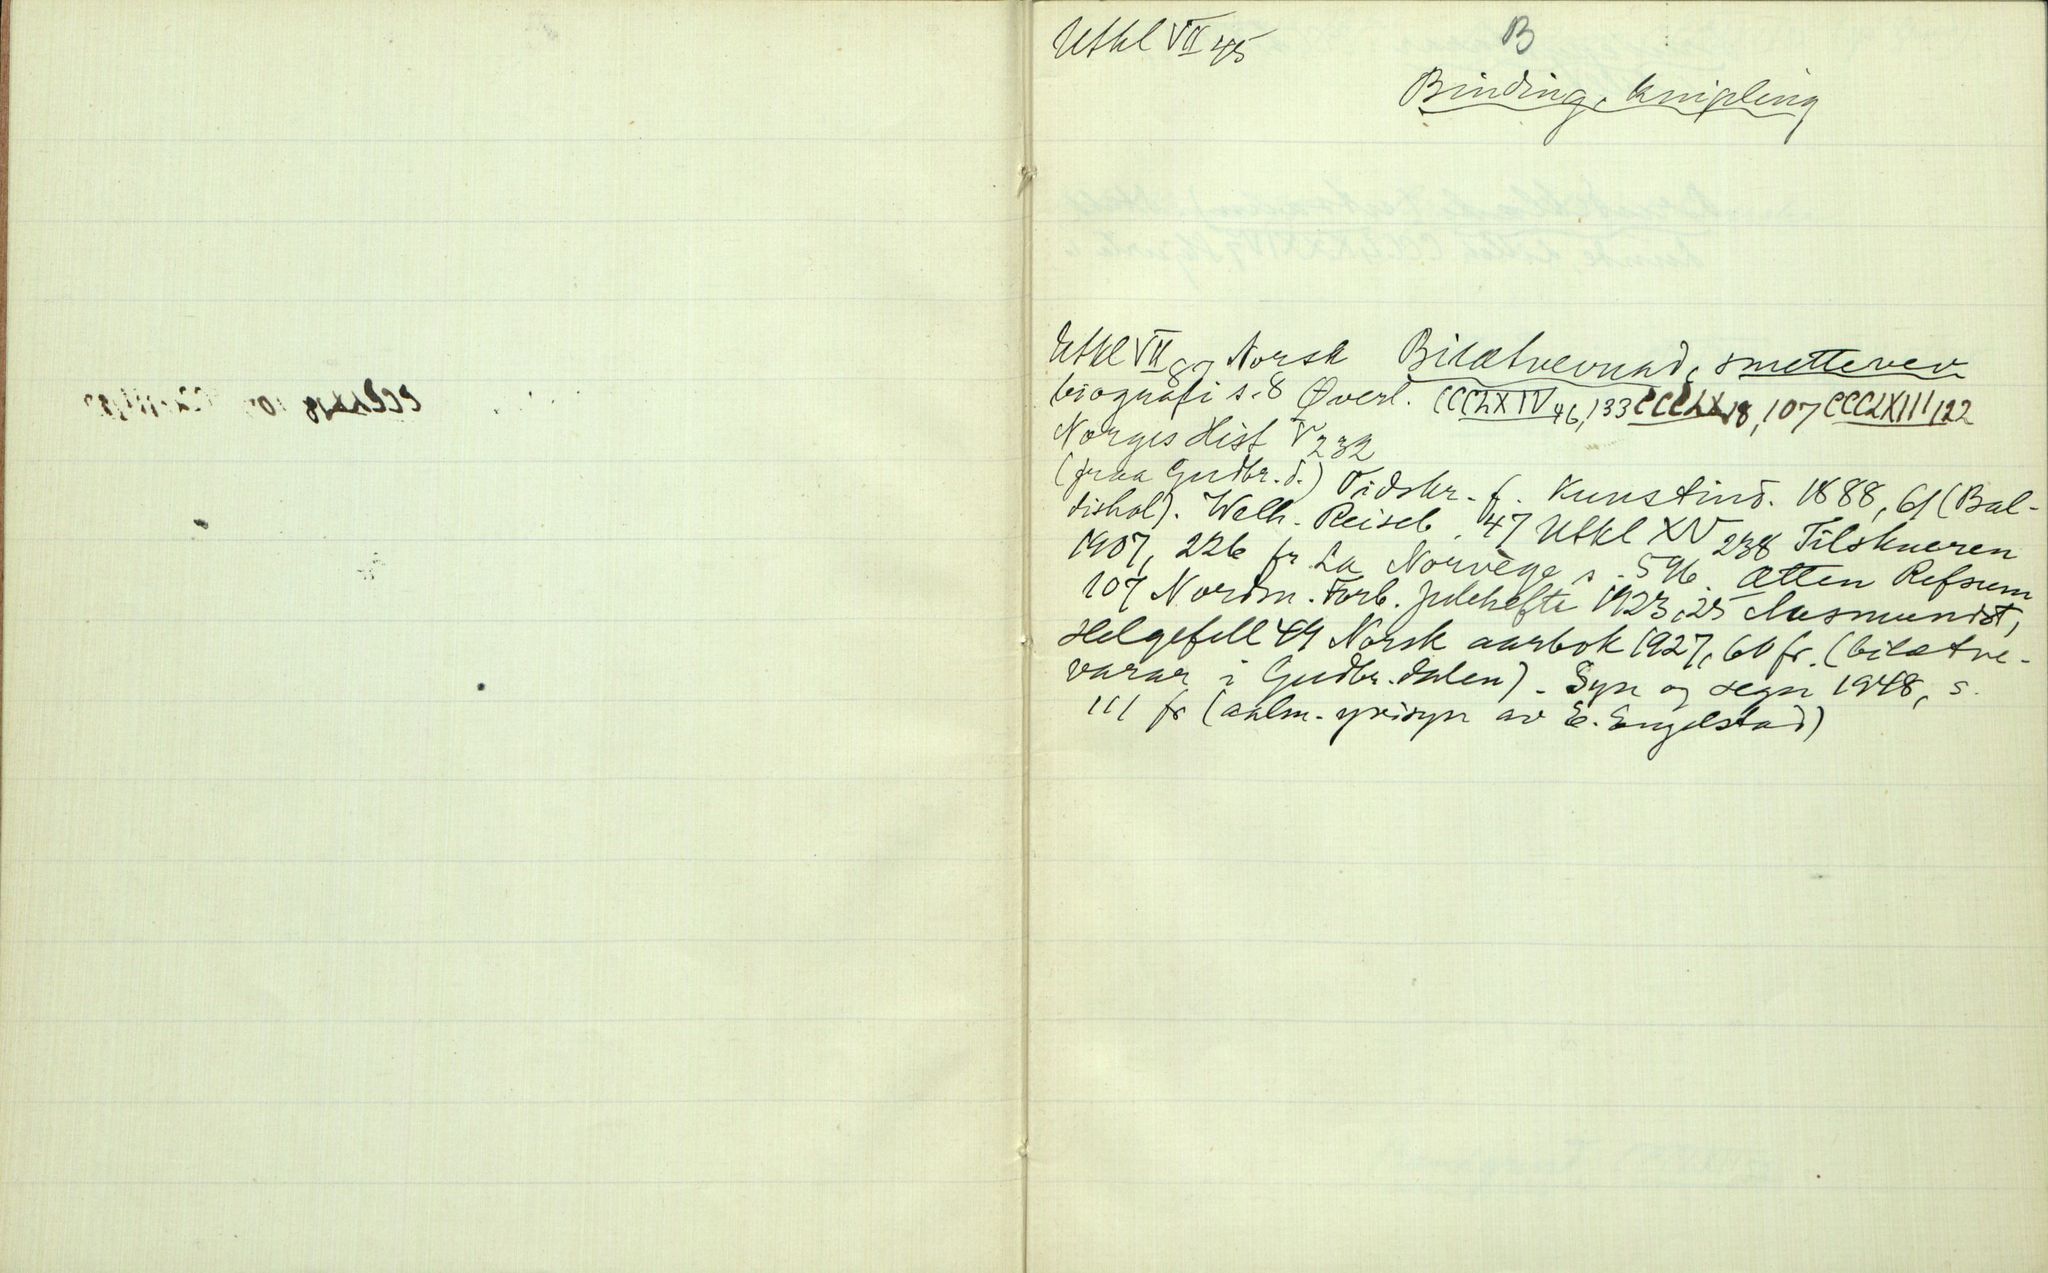 B
Utkl VII 45
Binding, knipling
Utkl VII 87 Norsk Biletvevnad, smettevev
biografi s. 8 Øverl. CCCLXIV 46, 133 CCCLX 18, 107 CCCLXIII 122
Norges Hist V 232
(fraa Gudbr.d.) Tidskr. f. Kunstind. 1888, 61 (Bal-
dishol). Welh. Reiseb. 47 Utkl XV 238 Tilskueren
1907, 226 fr La Norvège s. 596. Ætten Refsum
107 Nordm. Forb. Julehefte 1923, 25 Aasmundst,
Helgefell 49 Norsk aarbok 1927, 60 fr. (biletve-
varar i Gudbr.dalen). Syn og segn 1948, s.
111 fr (aalm. yvisyn av E. Engelstad)